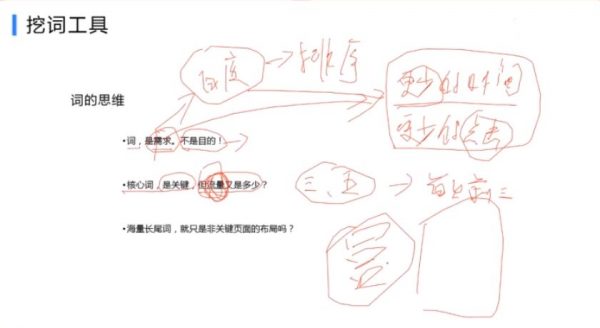 挖词工具
百度→排序
更少的时间
更少的点击
词的思维
•词，是需求。不是目的！
•核心词，是关键，但流量又是多少？
三、五→
•海量长尾词，就只是非关键页面的布局吗？